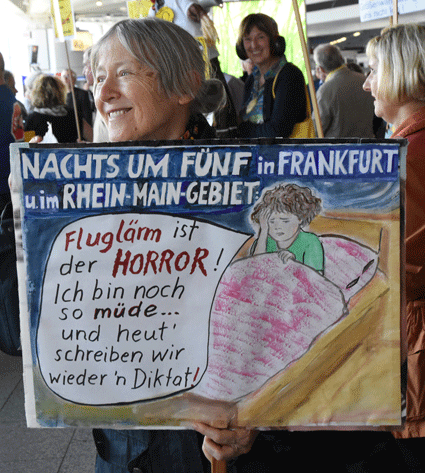 NACHTS UM FÜNF in FRANKFURT
u. im RHEIN-MAIN-GEBIET:
Fluglärm ist
der HORROR!
Ich bin noch
so müde...
und heut'
schreiben wir
wieder'n Diktat!